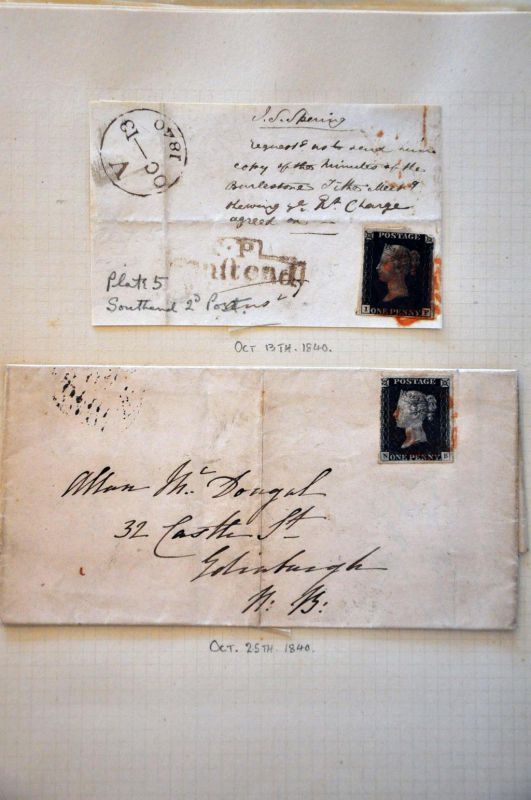 1840
OC-13
A
J. S. Skering
request us to send him
copy of the Minutes of the
Burlestone Tithe Meetg
shewing ye Rt Charge
agreed on
Plate 5
Southend 2d Post.
POSTAGE
ONE PENNY
OCT 13TH. 1840.
POSTAGE
N ONE PENNY B
Allan Mc Dougal
32 Castle St
Edinburgh
N. B.
OCT. 25TH. 1840.